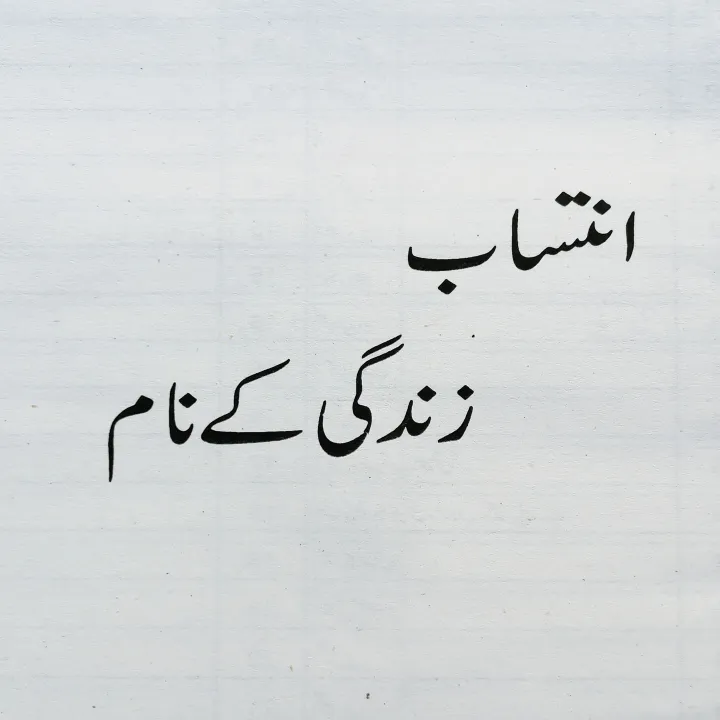 انتساب
زندگی کے نام